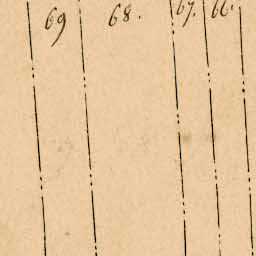 69 68. 67. 66.